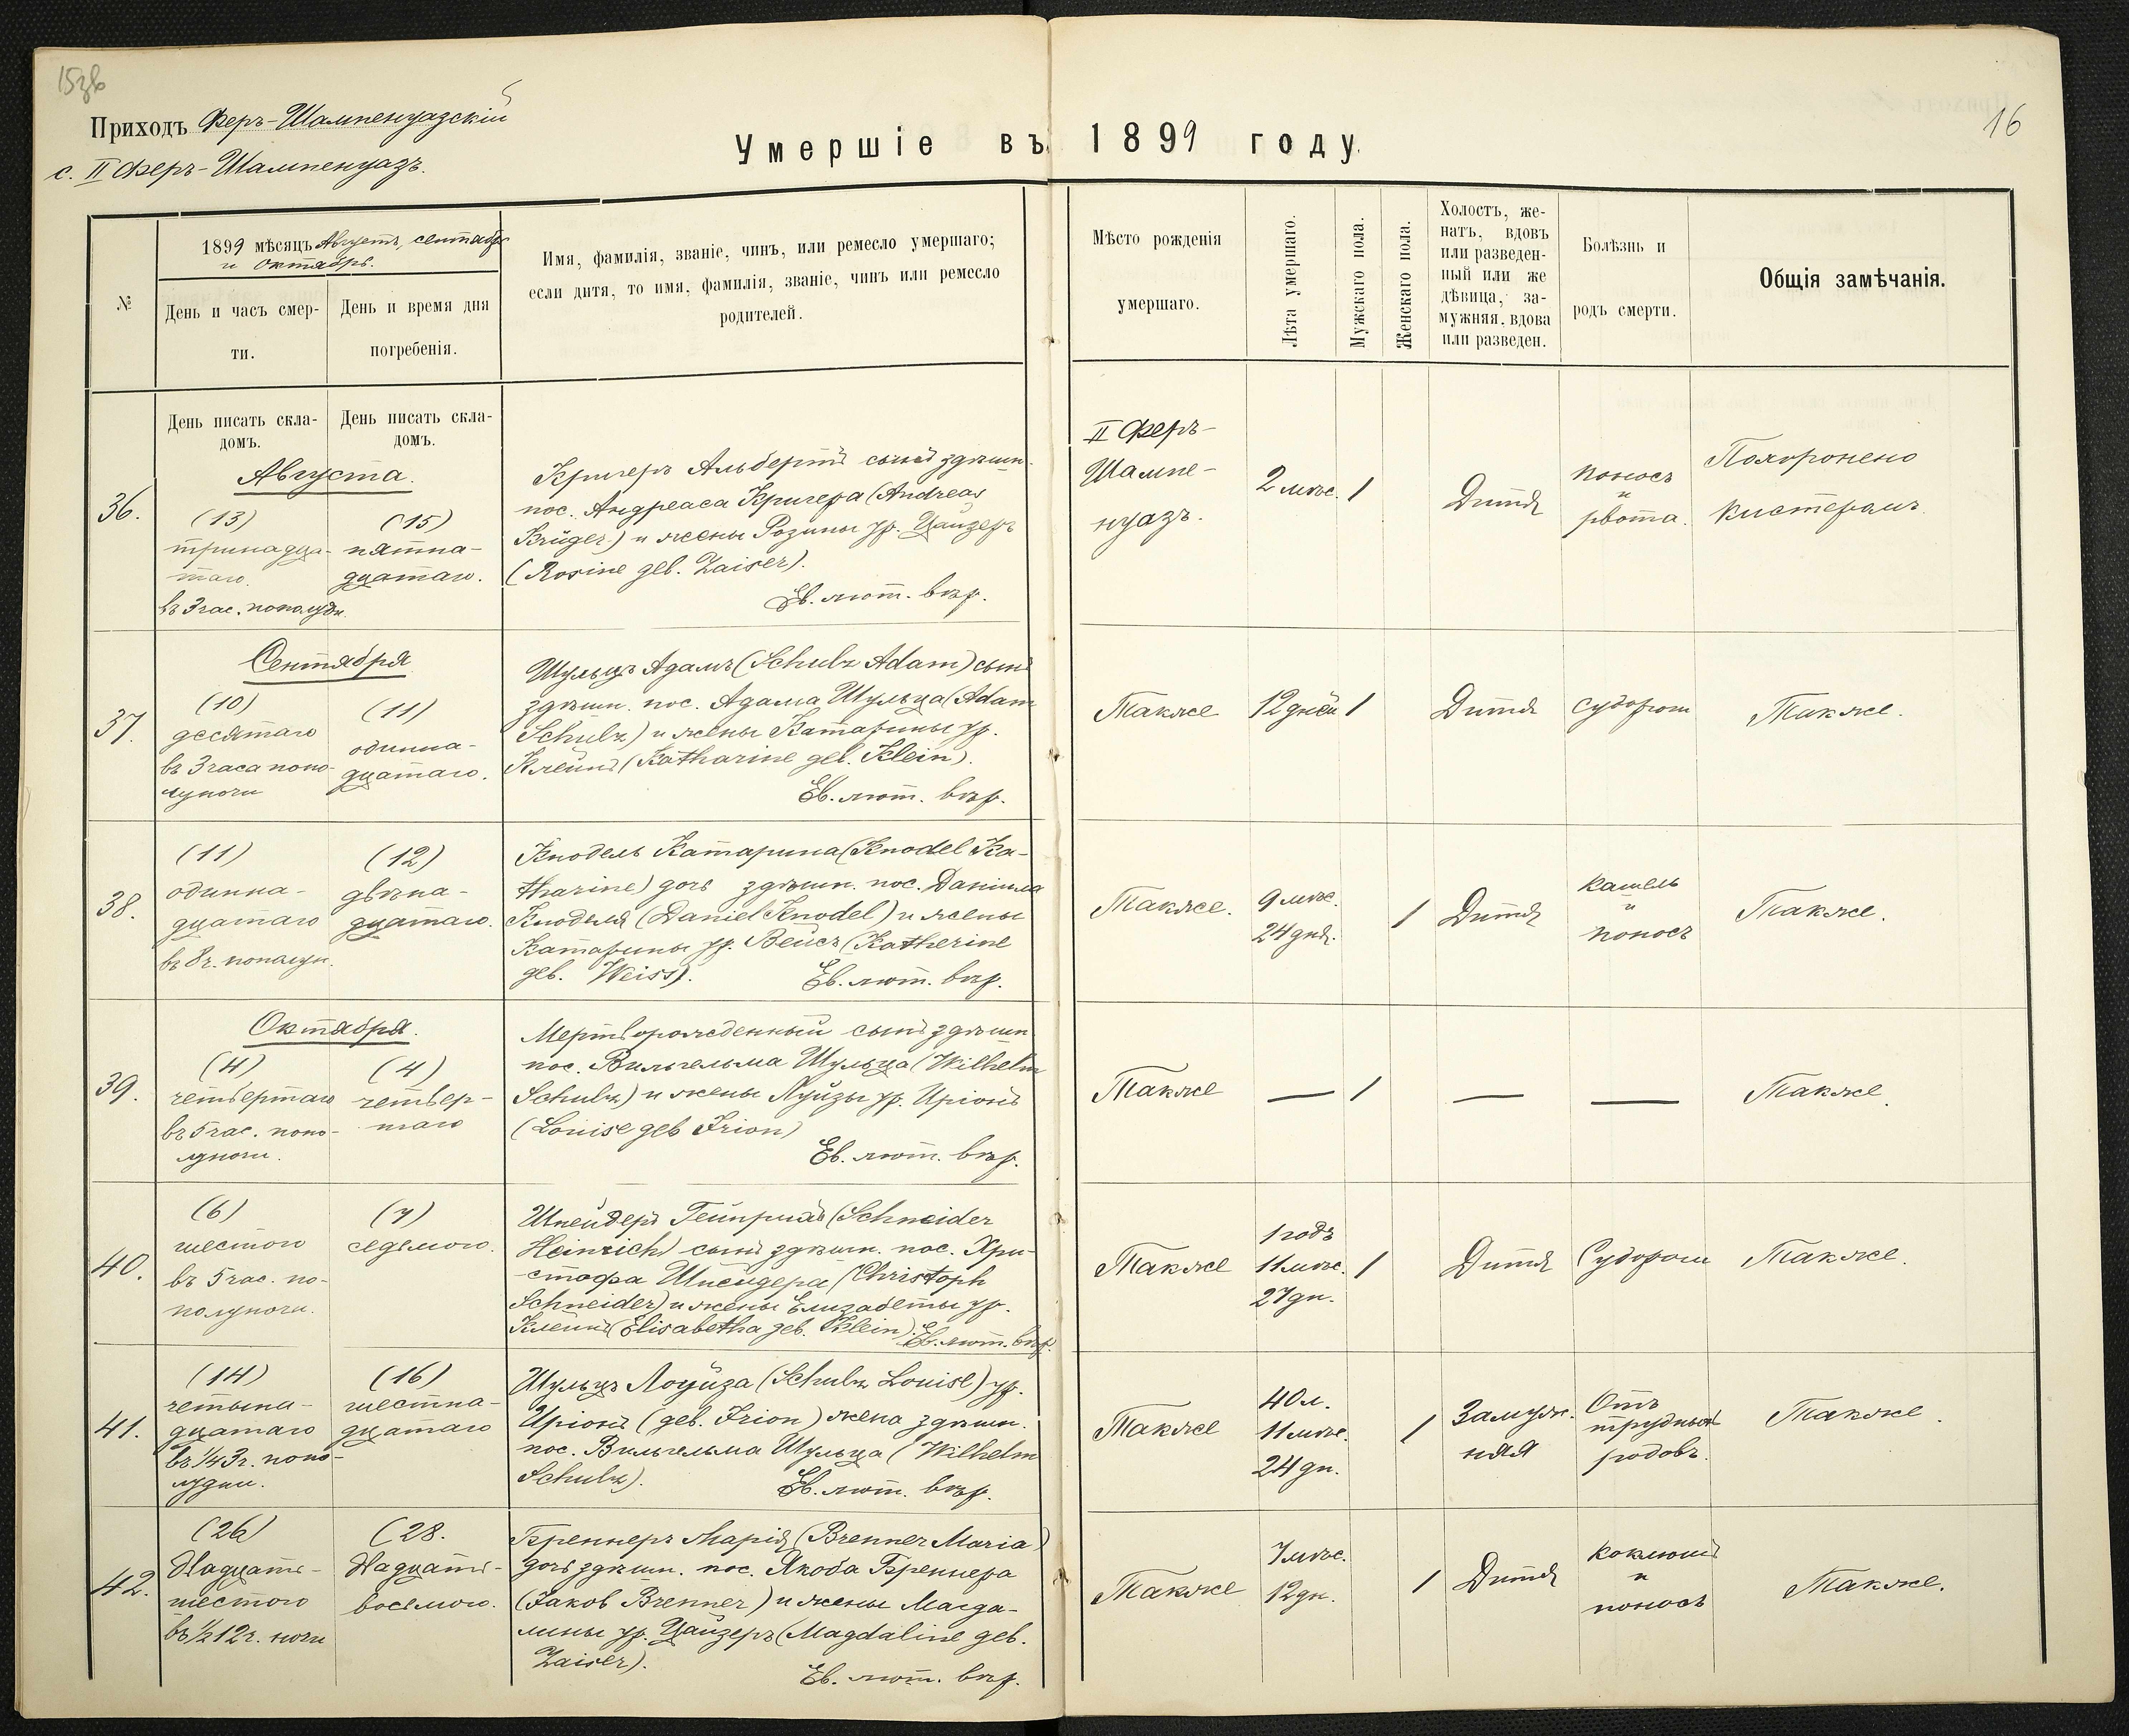 15 зв
Приходъ Феръ-Шампенуазскій
с. II Феръ-Шампенуазъ.
Умершіе въ 1899 году.
16
№
1899 мѣсяцъ Августъ, сентябрь
и Октябрь.
День и часъ смер-
ти.
День и время дня
погребенія.
Имя, фамилія, званіе, чинъ, или ремесло умершаго;
если дитя, то имя, фамилія, званіе, чинъ или ремесло
родителей.
Мѣсто рожденія
умершаго.
Лѣта умершаго.
Мужскаго пола.
Женскаго пола.
Холостъ, же-
натъ, вдовъ
или разведен-
ный или же
дѣвица, за-
мужняя, вдова
или разведен.
Болѣзнь и
родъ смерти.
Общія замѣчанія.
День писать скла-
домъ.
День писать скла-
домъ.
Августа.
36.
(13)
тринадца-
таго.
въ 3 час. пополудн.
(15)
пятна-
дцатаго.
Кригеръ Альбертъ сынъ здѣшн.
пос. Андреаса Кригера (Andreas
Krüger) и жены Розины ур. Цайзеръ
(Rosine geb. Zaiser).
Ев. лют. вѣр.
II Феръ-
Шампе-
нуазъ.
2 мѣс.
1
Дитя
поносъ
и
рвота.
Похоронено
кистеромъ.
Сентября
37.
(10)
десятаго
въ 3 часа попо-
луночи
(11)
одинна-
дцатаго.
Шульцъ Адамъ (Schulz Adam) сынъ
здѣшн. пос. Адама Шульца (Adam
Schulz) и жены Катарины ур.
Клейнъ (Katharine geb. Klein).
Ев. лют. вѣр.
Также
12 дней
1
Дитя
судороги
Также.
38.
(11)
одинна-
дцатаго
въ 8 ч. пополун.
(12)
двѣна-
дцатаго.
Кнодель Катарина (Knodel Ka-
tharine) дочь здѣшн. пос. Даніила
Кноделя (Daniel Knodel) и жены
Катарины ур. Вейсъ (Katherine
geb. Weiss).
Ев. лют. вѣр.
Также.
9 мѣс.
24 дня.
1
Дитя
кашель
и
поносъ
Также.
Октября.
39.
(4)
четвертаго
въ 5 час. попо-
луночи.
(4)
четвер-
таго
Мертворожденный сынъ здѣшн
пос. Вильгельма Шульца (Wilhelm
Schulz) и жены Луизы ур. Иріонъ
(Louise geb Irion)
Ев. лют. вѣр.
Также
—
1
—
—
Также.
40.
(6)
шестого
въ 5 час. по-
полуночи.
(7)
седьмого.
Шнейдеръ Гейнрихъ (Schneider
Heinrich) сынъ здѣшн. пос. Хри-
стофа Шнейдера (Christoph
Schneider) и жены Елизабеты ур.
Клейнъ (Elisabetha geb. Klein). Ев. лют. вѣр.
Также
1 годъ
11 мѣс.
27 дн.
1
Дитя
Судороги
Также.
41.
(14)
четырна-
дцатаго
въ 1/4 3 ч. попо-
лудни.
(16)
шестна-
дцатаго
Шульцъ Лоуиза (Schulz Louise) ур.
Иріонъ (geb. Irion) жена здѣшн.
пос. Вильгельма Шульца (Wilhelm
Schulz).
Ев. лют. вѣр.
Также
40 л.
11 мѣс.
24 дн.
1
Замуж-
няя
Отъ
трудныхъ
родовъ.
Также.
42.
(26)
Двадцать-
шестого
въ 1/2 12 ч. ночи
(28.
Двадцать-
восьмого.
Бреннеръ Марія (Brenner Maria)
дочь здѣшн. пос. Якоба Бреннера
(Jakob Brenner) и жены Магда-
лины ур. Цайзеръ (Magdaline geb.
Zaiser).
Ев. лют. вѣр.
Также
7 мѣс.
12 дн.
1
Дитя
коклюшъ
и
поносъ
Также.